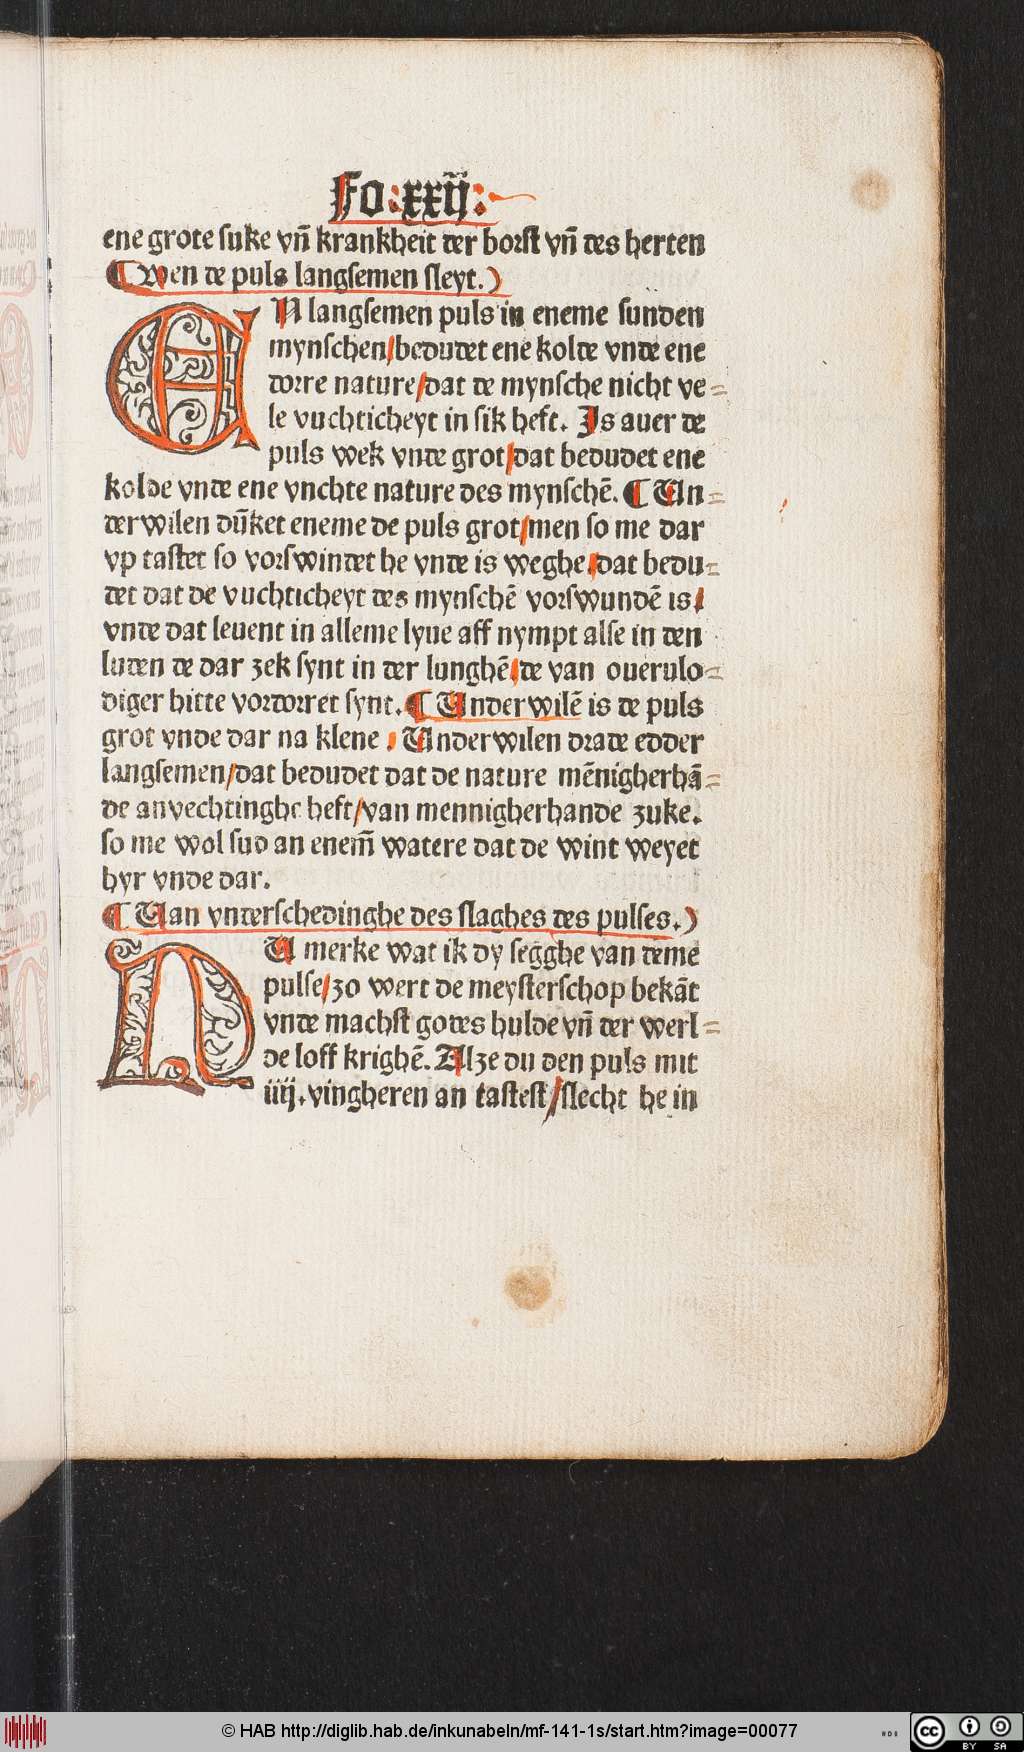 Fo: xxij:
ene grote suke vn̄ krankheit der borst vn̄ des herten
¶ Wen de puls langsemen sleyt.)
EN langsemen puls in eneme sunden
mynschen/bedudet ene kolde vnde ene
dorre nature/dat de mynsche nicht ve=
le vuchticheyt in sik heft. Is auer de
puls wek vnde grot/dat bedudet ene
kolde vnde ene vnchte nature des mynschē. ¶ Un=
derwilen dūket eneme de puls grot/men so me dar
vp tastet so vorswindet he vnde is weghe/dat bedu=
det dat de vuchticheyt des mynschē vorswundē is/
vnde dat leuent in alleme lyue aff nympt alse in den
luden de dar zek synt in der lunghē/de van ouerulo=
diger hitte vordorret synt. ¶ Underwilē is de puls
grot vnde dar na klene / Underwilen drade edder
langsemen/dat bedudet dat de nature mēnigherhā=
de anvechtinghe heft/van mennigherhande zuke.
so me wol sud an enem̄ watere dat de wint weyet
hyr vnde dar.
¶ Uan vnderschedinghe des slaghes des pulses.)
NU merke wat ik dy segghe van deme
pulse/zo wert de meysterschop bekāt
vnde machst godes hulde vn̄ der werl=
de loff krighē. Alze du den puls mit
iiij. vingheren an tastest/slecht he in
© HAB http://diglib.hab.de/inkunabeln/mf-141-1s/start.htm?image=00077
cc BY SA